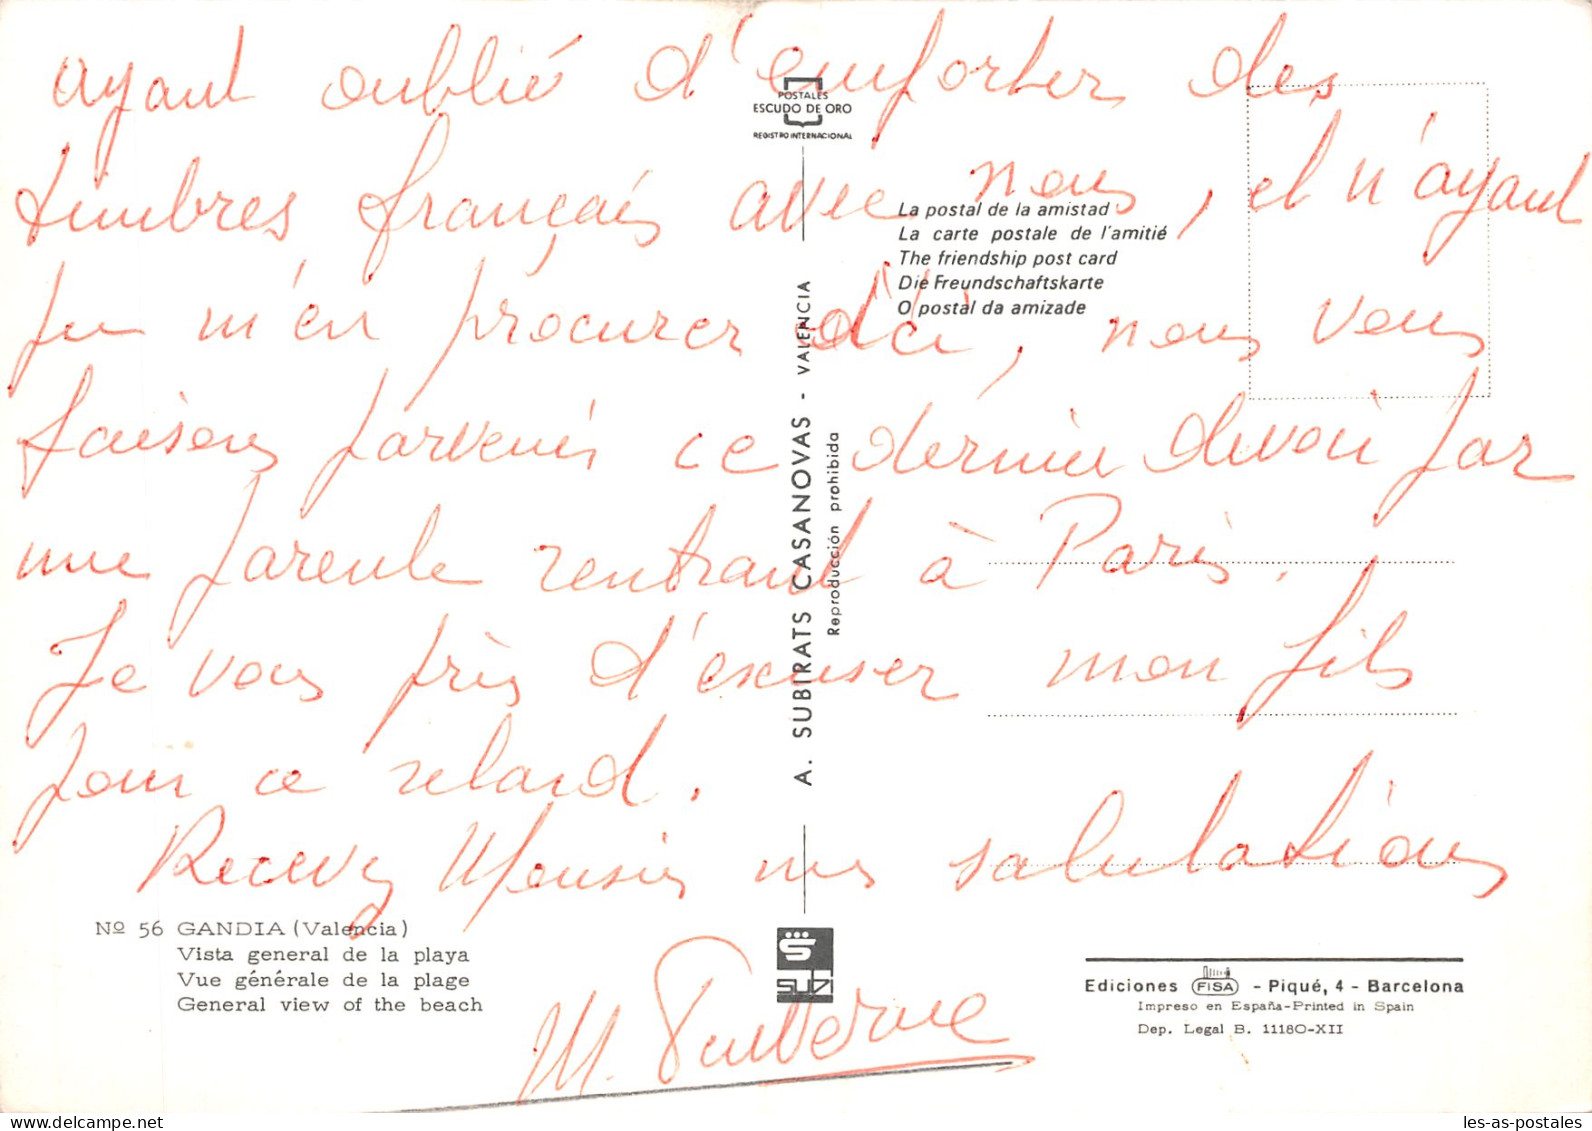 ayant oublié d'emporter des
timbres français avec nous, et n'ayant
pu m'en procurer d'ici, nous vous
faisons parvenir ce dernier devoir par
une parente rentrant à Paris.
Je vous pris d'excuser mon fils
pour ce retard.
Recevez Monsieur mes salutations
M.
POSTALES
ESCUDO DE ORO
REGISTRO INTERNACIONAL
La postal de la amistad
La carte postale de l'amitié
The friendship post card
Die Freundschaftskarte
O postal da amizade
A. SUBIRATS CASANOVAS - VALENCIA
Reproducción prohibida
Nº 56 GANDIA (Valencia)
Vista general de la playa
Vue générale de la plage
General view of the beach
S
SUBI
Ediciones FISA - Piqué, 4 - Barcelona
Impreso en España-Printed in Spain
Dep. Legal B. 11180-XII
les-as-postales